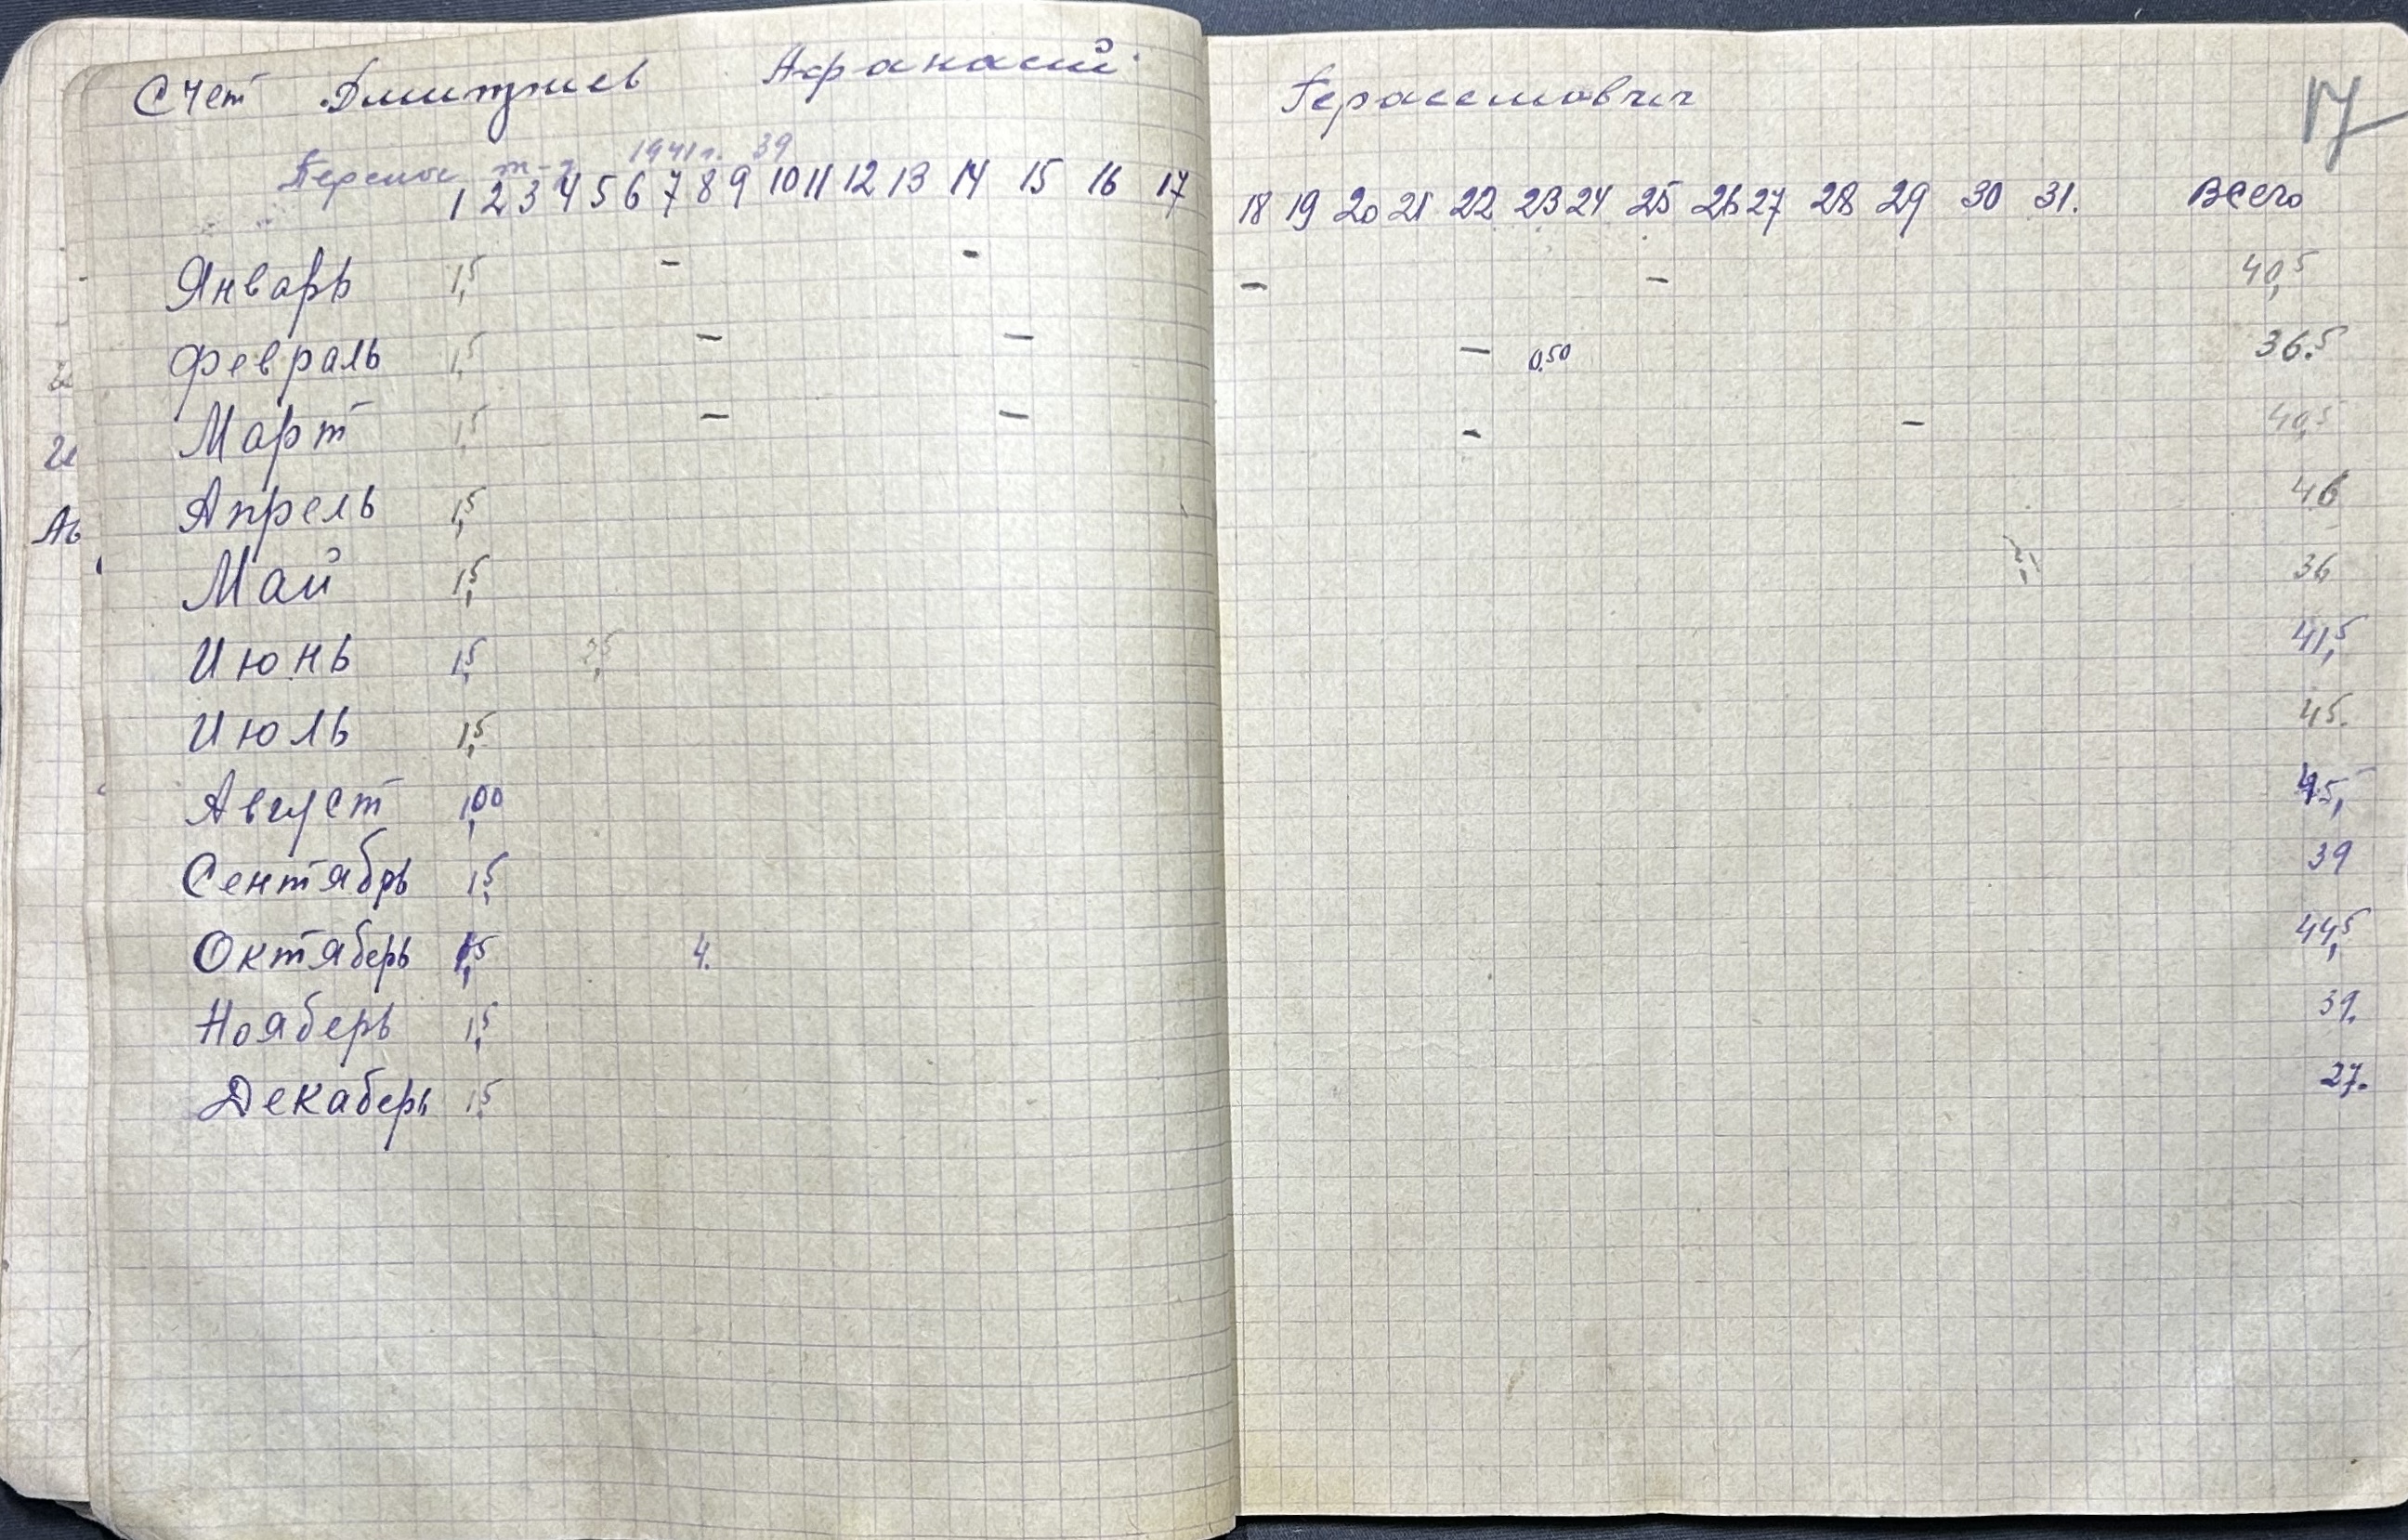 Счет Дмитриев Афанасий Герасемович 17
Перенос т-д 1941 г. 39
1 2 3 4 5 6 7 8 9 10 11 12 13 14 15 16 17 18 19 20 21 22 23 24 25 26 27 28 29 30 31. Всего
Январь 1,5 - - - - 40,5
Февраль 1,5 - - - 0,50 36.5
Март 1,5 - - - - 40,5
Апрель 1,5 46
Май 1,5 36
Июнь 1,5 2,5 41,5
Июль 1,5 45.
Август 1,00 45,
Сентябрь 1,5 39
Октяберь 1,5 4. 44,5
Нояберь 1,5 39.
Декаберь 1,5 27.